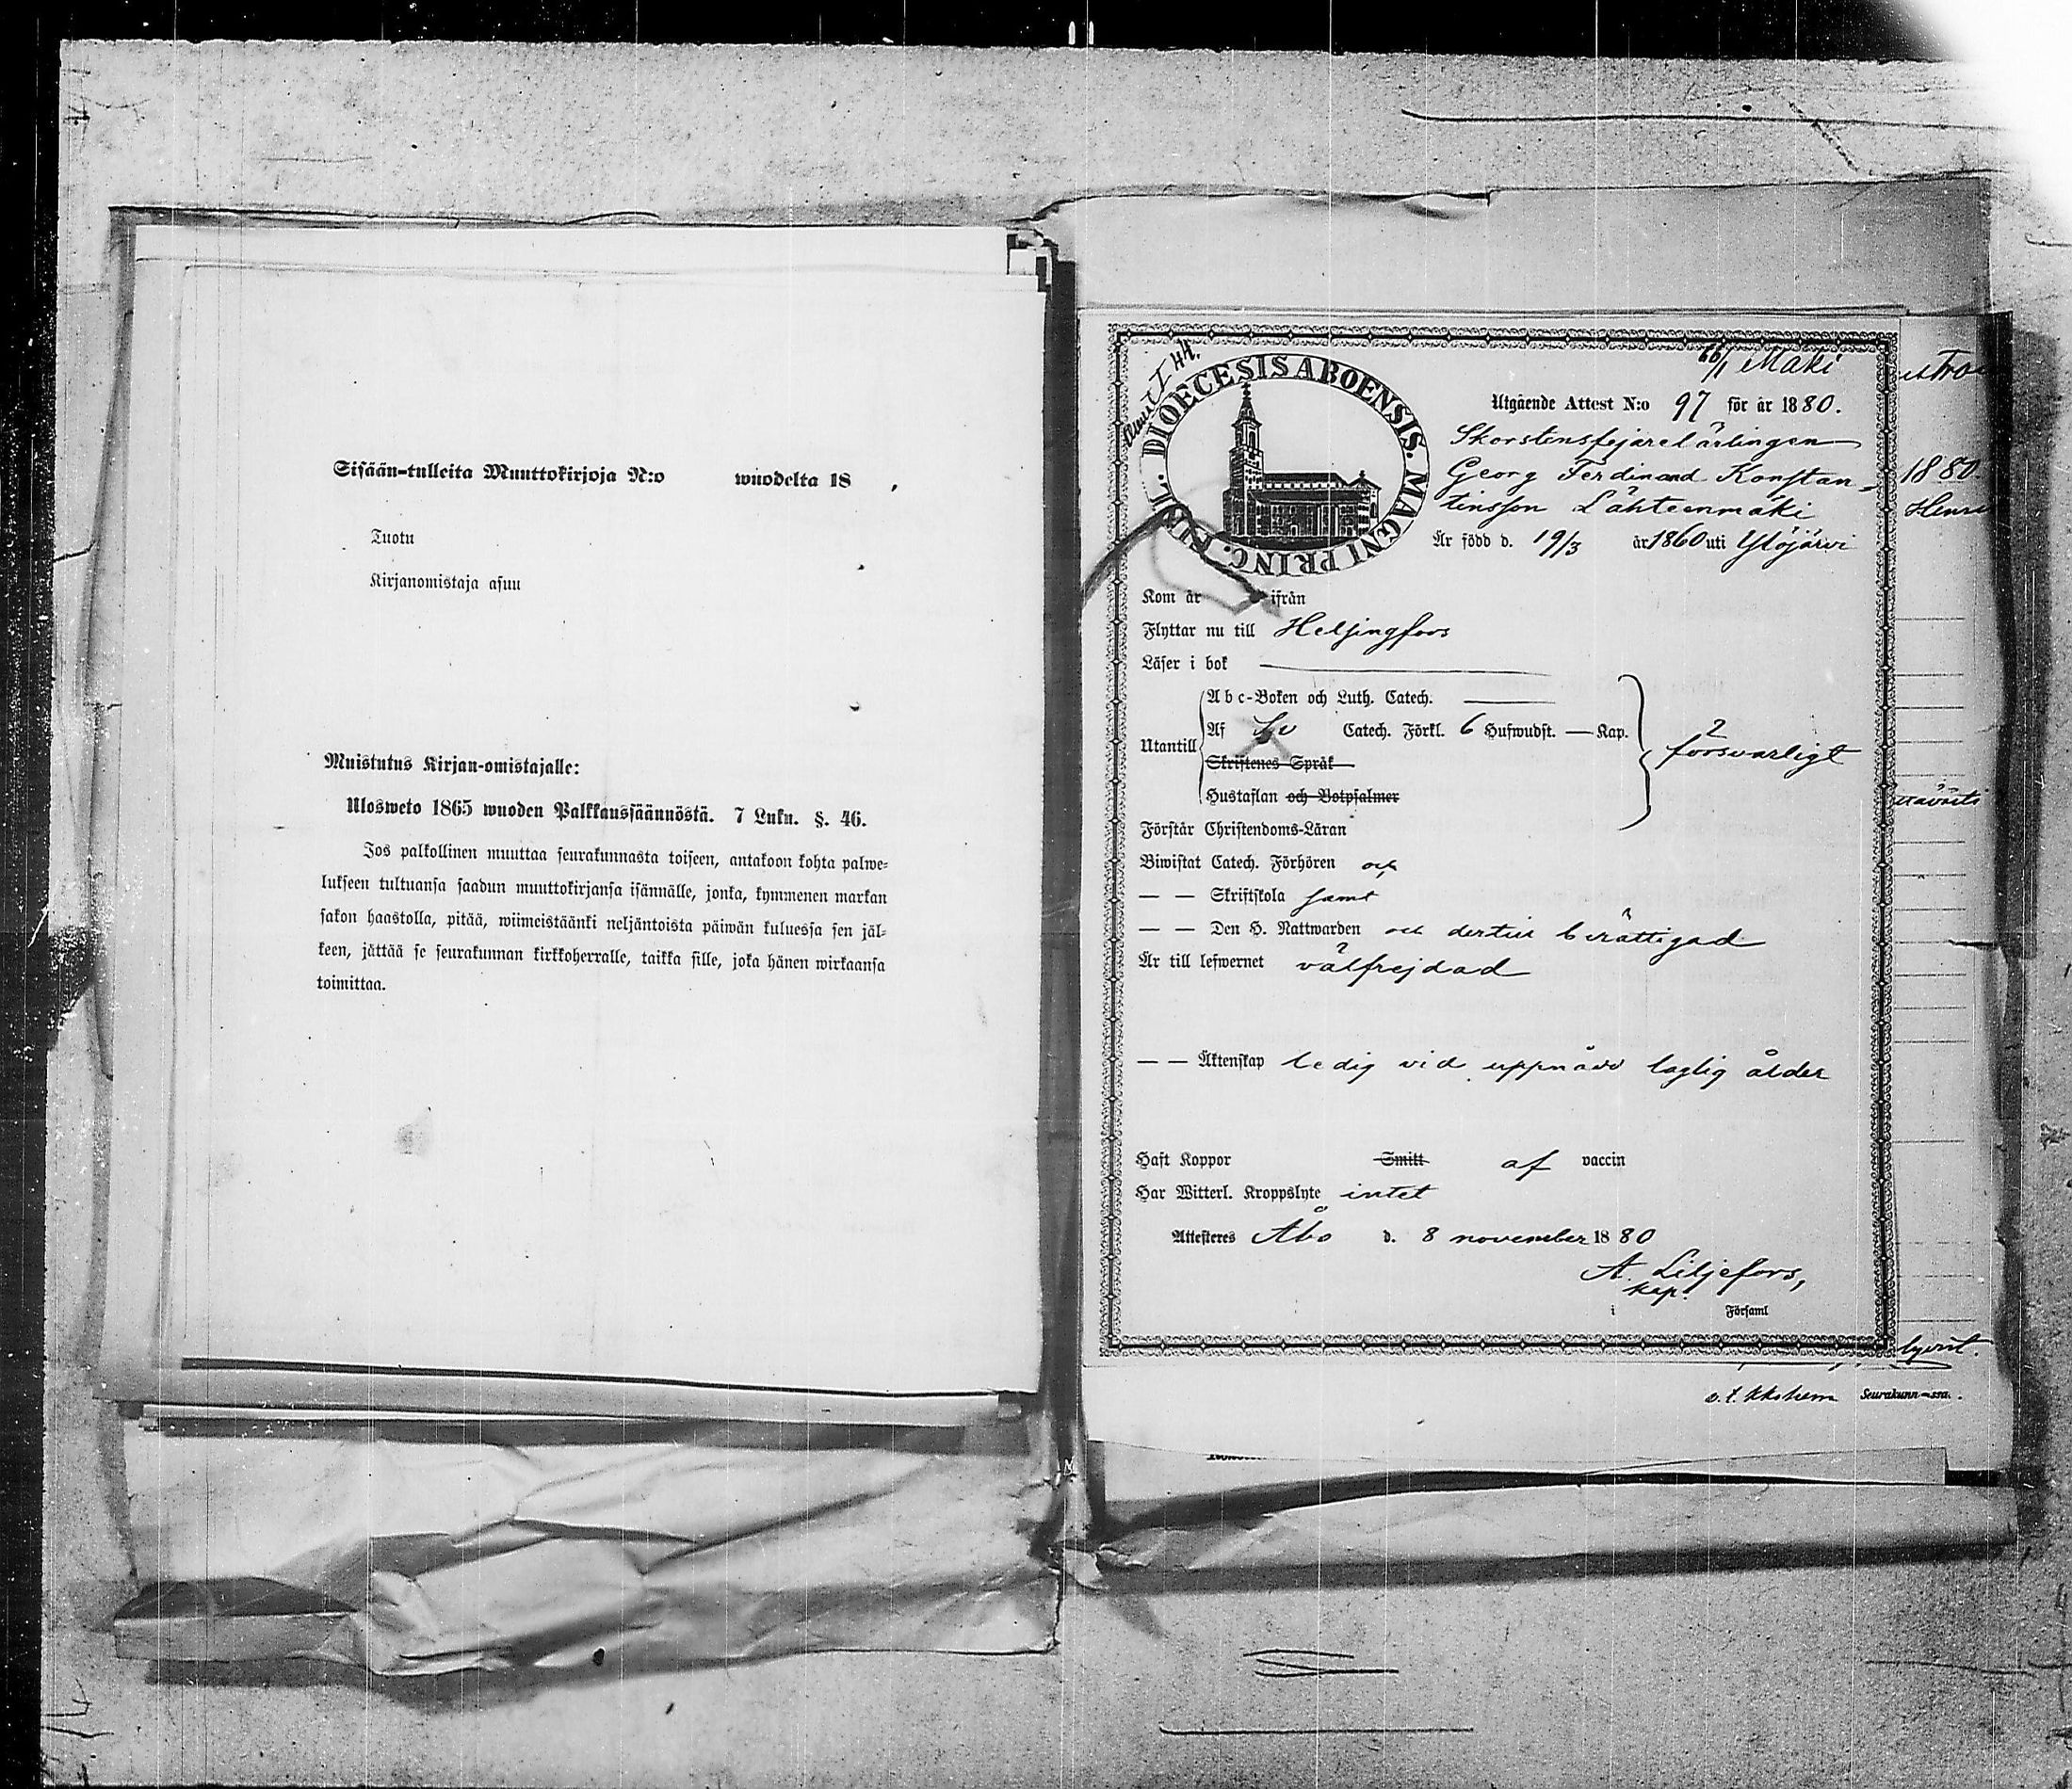 Sisään-tulleita Muuttokirjoja N:o wuodelta 18 .
Tuotu
Kirjanomistaja asuu
Muistutus Kirjan-omistajalle:
Ulosweto 1865 wuoden Palkkaussäännöstä. 7 Luku. §. 46.
Jos palkollinen muuttaa seurakunnasta toiseen, antakoon kohta palwe-
lukseen tultuansa saadun muuttokirjansa isännälle, jonka, kymmenen markan
sakon haastolla, pitää, wiimeistäänki neljäntoista päiwän kuluessa sen jäl-
keen, jättää se seurakunnan kirkkoherralle, taikka sille, joka hänen wirkaansa
toimittaa.
I 44.
DIOECESIS ABOENSIS. MAGNI PRINC. FINL.
66/1 Mäki
Utgående Attest N:o 97 för år 1880.
Skorstensfejarelärlingen
Georg Ferdinand Konstan-
tinsson Lähteenmäki
Är född d. 19/3 år 1860 uti Ylöjärvi
Kom år ifrån
Flyttar nu till Helsingfors
Läser i bok
Abc-Boken och Luth. Catech.
Utantill
Af Sv Catech. Förkl. 6 Hufwudst. — Kap.
Skriftenes Språk
Hustaflan och Botpsalmer
försvarligt
Förstår Christendoms-Läran
Biwistat Catech. Förhören och
— — Skriftskola samt
— — Den H. Nattwarden och dertill berättigad
Är till lefwernet välfrejdad
— — Äktenskap ledig vid uppnådd laglig ålder
Haft Koppor Smitt af vaccin
Har Witterl. Kroppslyte intet
Attesteres Åbo d. 8 november 1880
A. Liljefors,
kap.
i Församl
1880.
Seurakunn—ssa.